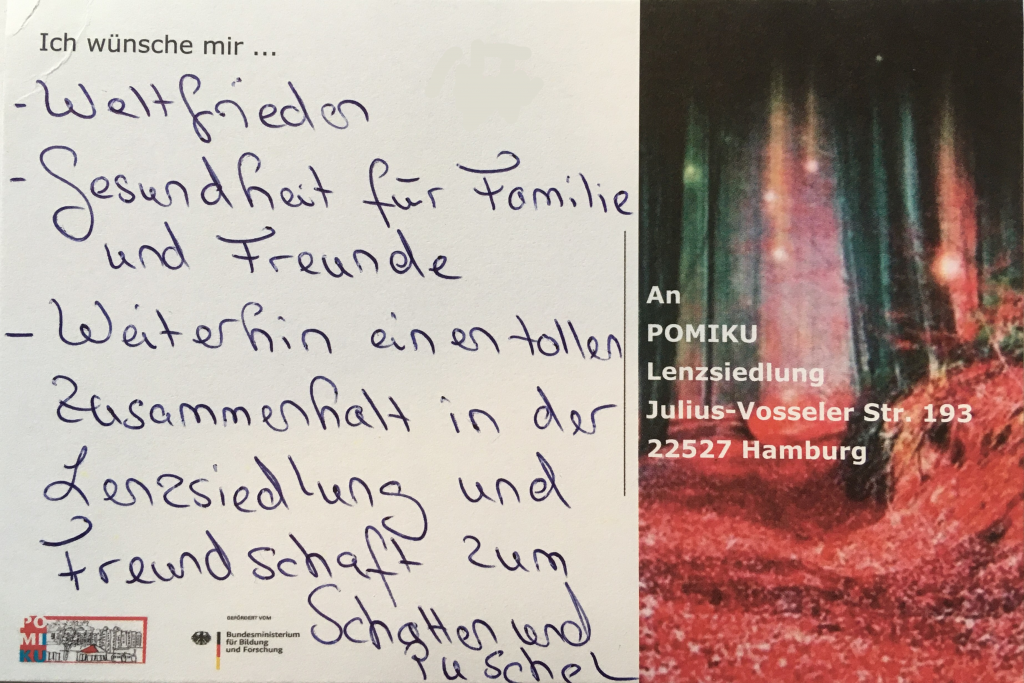 Ich wünsche mir ...
- Weltfrieden
- Gesundheit für Familie
und Freunde
- Weiterhin einen tollen
Zusammenhalt in der
Lenzsiedlung und
Freundschaft zum
Schatten und
Puschel
An
POMIKU
Lenzsiedlung
Julius-Vosseler Str. 193
22527 Hamburg
PO
MI
KU
GEFÖRDERT VOM
Bundesministerium
für Bildung
und Forschung